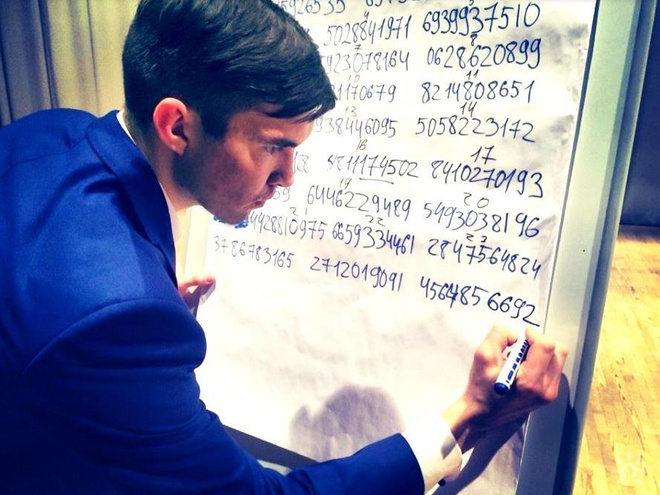 5926535
4
5028841971 6939937510
7 8
923078164 0628620899
10 11
1170679 8214808651
13 14
938446095 5058223172
16 17
28 4811174502 8410270193
19 20
59 6446229489 5493038196
21 22 23
4428810975 6659334461 2847564824
3786783165 2712019091 4564856692